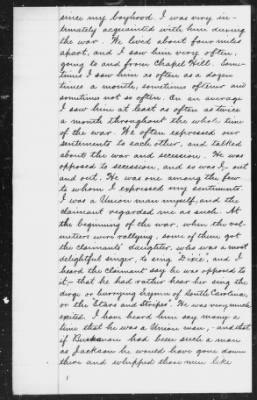 since my boyhood. I was very in-
timately acquainted with him during
the war. We lived about four miles
apart, and I saw him very often,
going to and from Chapel Hill. Some-
times I saw him as often as a dozen
times a month, sometimes oftener and
sometimes not so often. On an average
I saw him at least as often as twice
a month throughout the whole time
of the war. We often expressed our
sentiments to each other, and talked
about the war and secession. He was
opposed to secession, and so was I, out
and out. He was one among the few
to whom I expressed my sentiments.
I was a Union man myself, and the
claimant regarded me as such. At
the beginning of the war, when the vol-
unteers were rallying, some of them got
the claimants' daughter, who was a most
delightful singer, to sing "Dixie", and I
heard the claimant say he was opposed to
it;- that he had rather hear her sing the
dirge or burying hymn of South Carolina,
or the "Stars and Stripes". He was very much
excited. I have heard him say many a
time that he was a Union man, - and that
if Buchanan had been such a man
as Jackson he would have gone down
there and whipped those men like